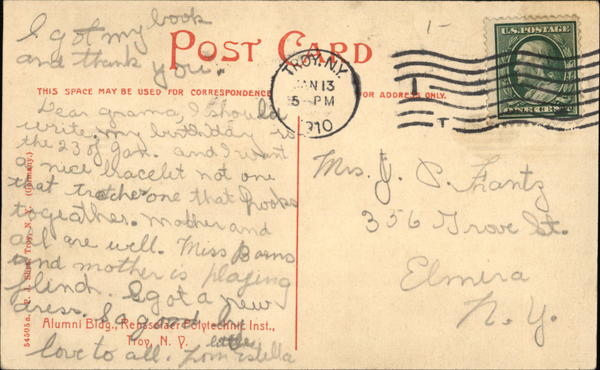 I got my book
and thank you.
POST CARD
THIS SPACE MAY BE USED FOR CORRESPONDENCE
FOR ADDRESS ONLY.
TROY, N.Y.
JAN 13
5-PM
1910
U.S. POSTAGE
ONE CENT
Dear grama, I should
write. my birthday is
the 23 of Jan. and I want
a nice bracelet not one
that one that hooks
togeather. Mother and
all are well. Miss Barns
and mother is playing
flinch. I got a new
dress.
love to all. from little Estella
Alumni Bldg., Rensselaer Polytechnic Inst.,
Troy, N. Y.
Troy, N. Y. (Germany.)
Mrs. J. P. Frantz
356 Grove St.
Elmira
N. Y.